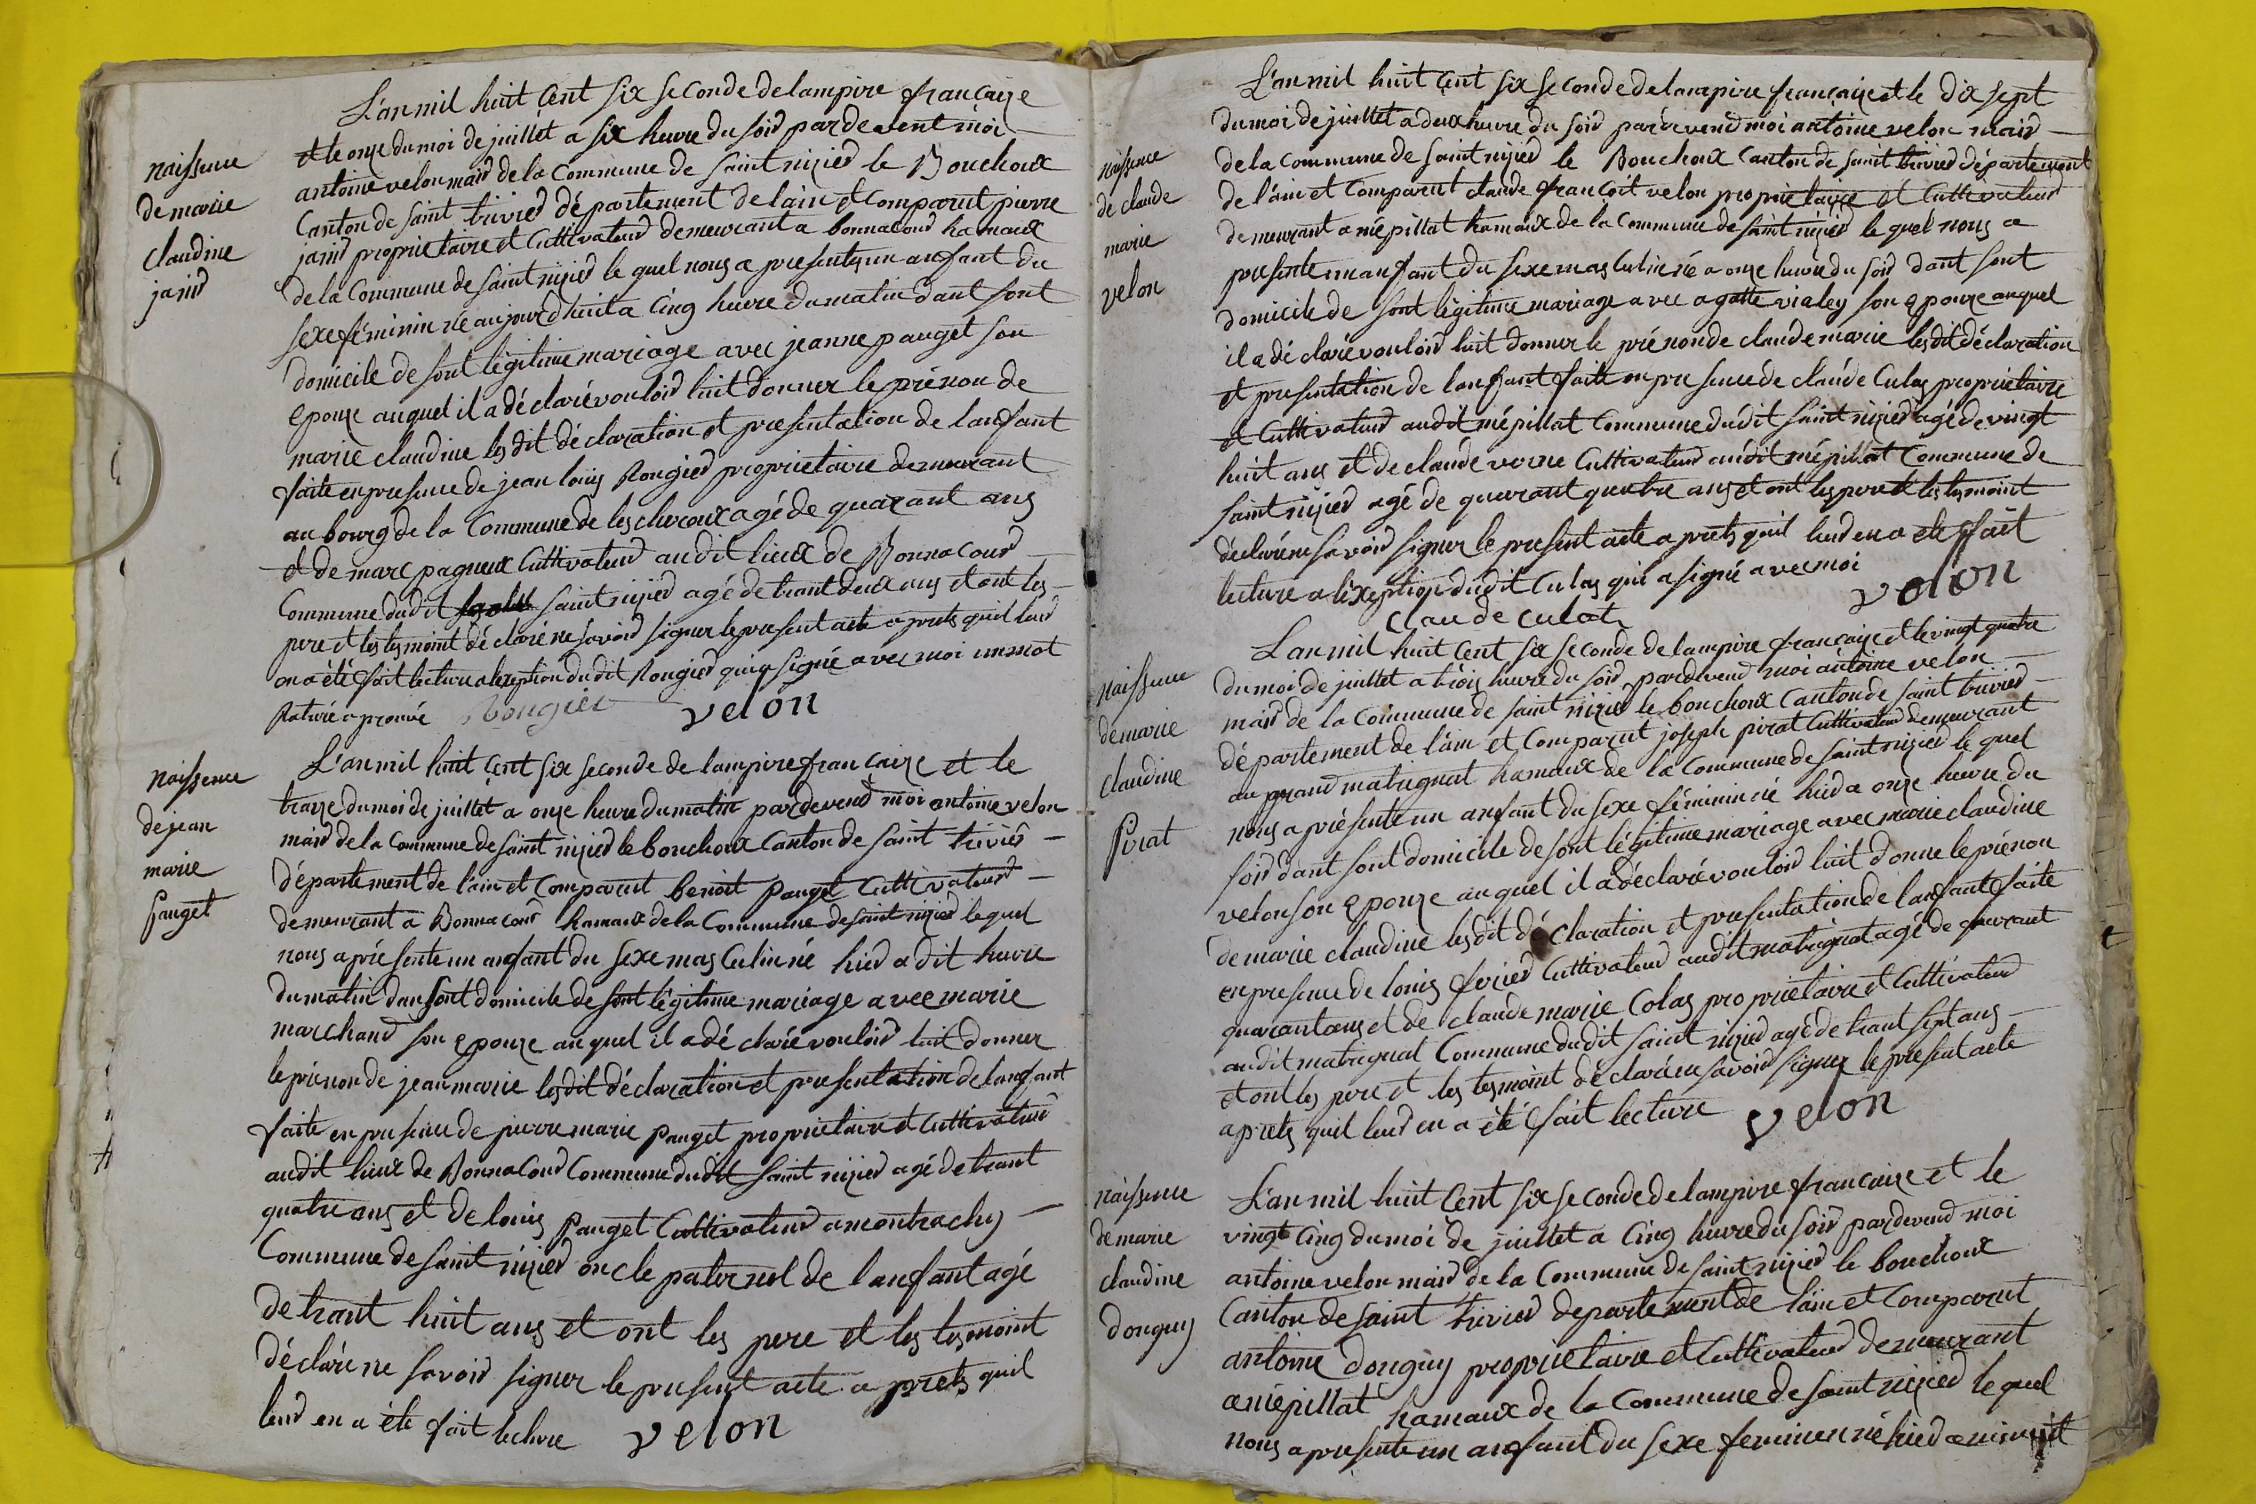 L'an mil huit cent six seconde de lampire françaize
et le onze du moi de juillet a six heure du soir pardevent moi
naissence
de marie
claudine
janir
antoine velon mair de la Commune de saint nizier le Bouchoux
Canton de saint trivier département de lain et Comparut pierre
janir proprietaire et Cultivateur demeurant a bonnacour hamaux
de la Commune de saint nizier le quel nous a presentez un anfant du
sexe féminin né aujourd'huit a Cinq heure du matin dant sont
domicile de sont légitime mariage avec jeanne pauget son
epouze auquel il a déclaré vouloir luit donner le prénon de
marie claudine lesdit déclaration et presentation de lanfant
faite en presence de jean louis Rongier proprietaire demeurant
au bourg de la Commune de lescheroux agé de quarant ans
et de marc pagneux Cultivateur audit lieux de Bonnacour
Commune dudit saint nizier agé de trant deux ans et ont les
pere et les tesmoint déclaré ne savoir signer le present acte a prets quil leur
en a été fait lecture a lexeption dudit Rongier qui a signé avec moi un mot
Raturé a prouvé Rongier velon
naissence
de jean
marie
pauget
L'an mil huit cent six seconde de lampire francaize et le
traize du moi de juillet a onze heure du matin pardevend moi antoine velon
mair de la Commune de saint nizier le bouchoux Canton de saint trivier
département de l'ain et Comparut benoit pauget Cultivateur
demeurant a Bonnacour hamaux de la Commune de saint nizier le quel
nous a présente un anfant du sexe masculin né hier a dit heure
du matin dan sont domicile de sont légitime mariage avec marie
marchand son epouze auquel il a dé claré vouloir luit donner
le prénon de jean marie lesdit déclaration et presentation de lanfant
faite en presence de pierre marie pauget proprietaire et Cultivateur
audit lieux de Bonnacour Commune dudit saint nizier agé de trant
quatre ans et de louis pauget Cultivateur a montrachy
Commune de saint nizier oncle paternel de l anfant agé
de trant huit ans et ont les pere et les tesmoint
déclaré ne savoir signer le present acte a prets quil
leur en a été fait lecture velon
L'an mil huit cent six seconde de lampire françaize et le dix sept
du moi de juillet a deux heure du soir pardevend moi antoine velon mair
naissence
de claude
marie
velon
de la Commune de saint nizier le Bouchoux Canton de saint trivier département
de l'ain et Comparut claude françoit velon proprietaire et Cultivateur
demeurant a mépillat hamaux de la Commune de saint nizier le quel nous a
presente un anfant du sexe masculin né a onze heure du soir dant sont
domicile de sont légitime mariage avec agatte vialey son epouze auquel
il a dé claré vouloir luit donner le prénon de claude marie lesdit déclaration
et presentation de lanfant faite en presence de claude Culas proprietaire
et Cultivateur audit mépillat Commune dudit saint nizier agé de vingt
huit ans et de claude verne Cultivateur audit mépillat Commune de
saint nizier agé de quarant quatre ans et ont les pere et les tesmoint
déclaré ne savoir signer le present acte a prets quil leur en a été fait
lecture a lexeption dudit Culas qui a signé avec moi velon
claude culat
naissence
de marie
claudine
Pirat
L'an mil huit cent six seconde de lampire françaize et le vingt quatre
du moi de juillet a trois heure du soir pardevend moi antoine velon
mair de la Commune de saint nizier le bouchoux Canton de saint trivier
département de l'ain et Comparut joseph pirat Cultivateur demeurant
au grand matrignat hamaux de la Commune de saint nizier le quel
nous a présente un anfant du sexe féminin né hier a onze heure du
soir dant sont domicile de sont légitime mariage avec marie claudine
velon son epouze auquel il a déclaré vouloir luit donne le prénon
de marie claudine lesdit déclaration et presentation de lanfant faite
en presence de louis ferier Cultivateur audit matrignat agé de quarant
quarant ans et de claude marie Colas proprietaire et Cultivateur
audit matrignat Commune dudit saint nizier agé de trant sept ans
et ont les pere et les tesmoint déclaré ne savoir signer le present acte
a prets quil leur en a été fait lecture velon
naissence
de marie
claudine
donguy
L'an mil huit cent six seconde de lampire françaize et le
vingt Cinq du moi de juillet a Cinq heure du soir pardevend moi
antoine velon mair de la Commune de saint nizier le bouchoux
Canton de saint trivier departement de l'ain et Comparut
antoine donguy proprietaire et Cultivateur demeurant
a mépillat hamaux de la Commune de saint nizier le quel
nous a presente un anfant du sexe feminin né hier a minuit